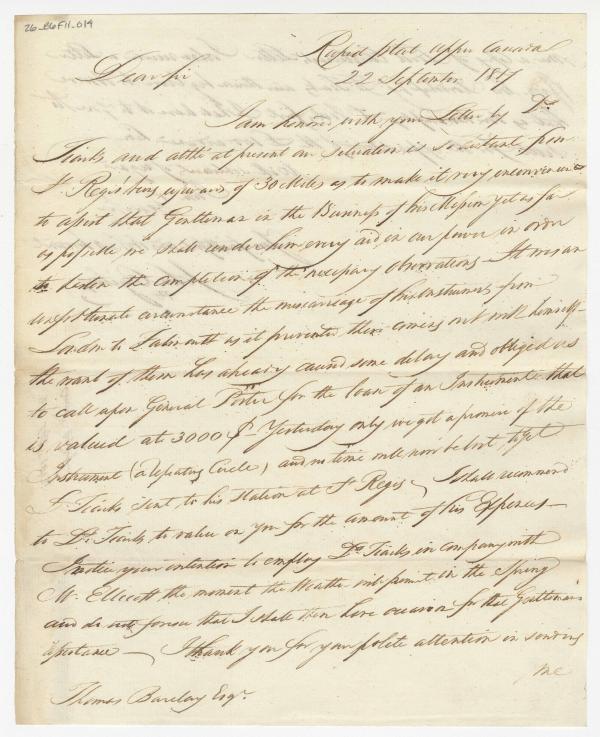 26_B6F11_014
Rapid plat upper Canada
Dear sir 22 September 1817
I am honor'd with your Letter by Dr.
Tiarks and altho at present our situation is so distant from
St. Regis being upwards of 30 Miles as to make it very inconvenient
to assist that Gentleman in the Business of his Mission yet as far
as possible we shall render him every aid in our power in order
to hasten the completion of the necessary observations — It was an
unfortunate circumstance the miscarriage of his Instruments from
London to Falmouth as it prevented their coming out with himself —
the want of them has already caused some delay and obliged us
to call upon General Porter for the loan of an Instrument that
is valued at 3000 $ — Yesterday only we got a promise of the
Instrument (a repeating Circle) and no time will now be lost to get
Dr. Tiarks sent to his station at St Regis — I shall recommend
to Dr. Tiarks to value on you for the amount of his Expences —
I notice your intention to employ Dr. Tiarks in company with
Mr. Ellicott the moment the Weather will permit in the Spring
and do not foresee that I shall then have occasion for that Gentleman's
assistance — I thank you for your polite attention in sending
me
Thomas Barclay Esqr.